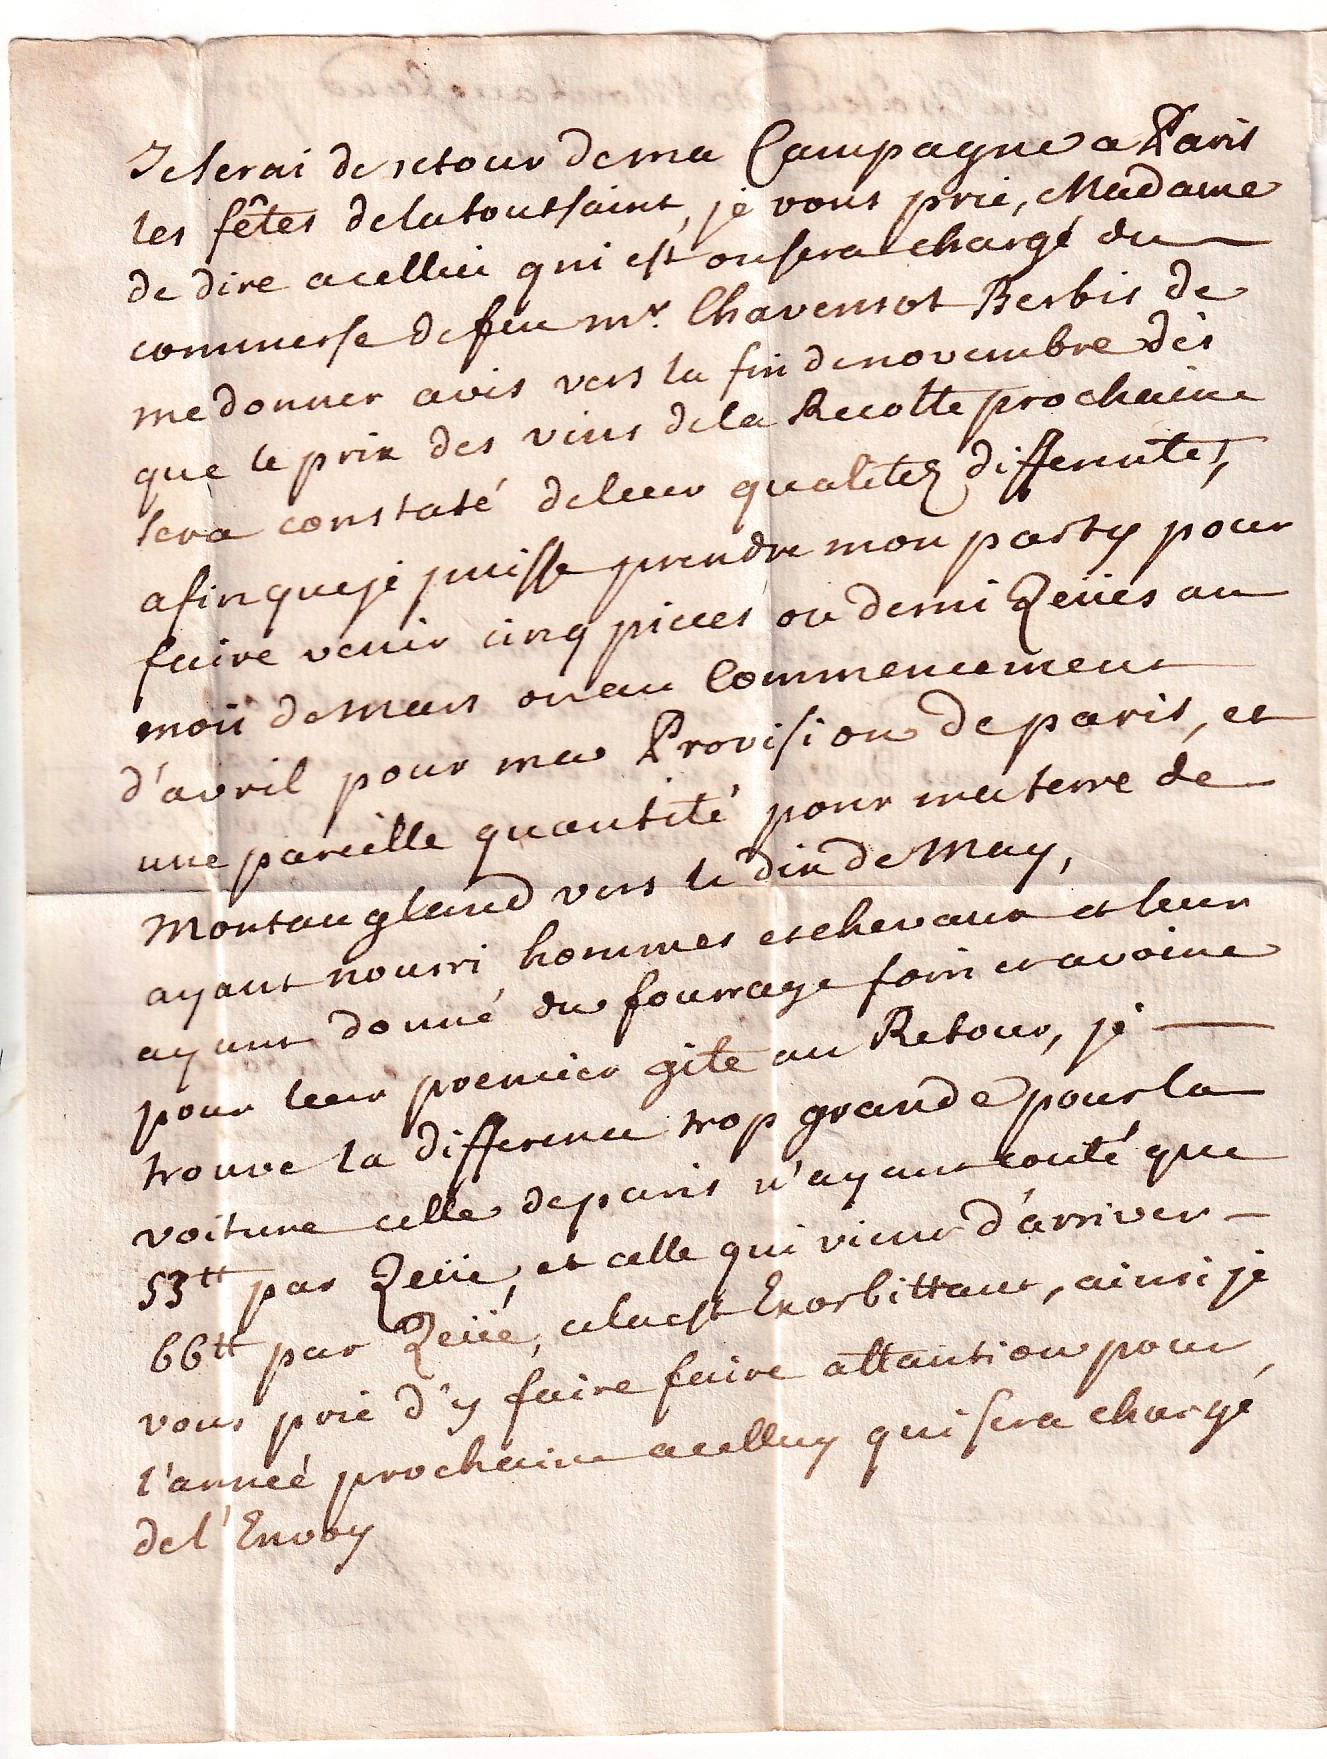 Je serai de retour de ma Campagne a Paris
les fêtes de la toussaint, je vous prie, Madame
de dire a cellui qui est ou sera chargé du
commerse de feu mr. Chavensot Berbis de
me donner avis vers la fin de novembre dès
que le prix des vins de la Recolte prochaine
sera constaté de leur qualitez differentes,
afin que je puisse prendre mon party pour
faire venir cinq pieces ou demi Qeües au
mois de mars ou au Commencement
d'avril pour ma Provision de paris, et
une pareille quantité pour ma terre de
Montaugland vers le dix de May,
ayant nourri hommes et chevaux et leur
ayant donné du fourrage foin et avoine
pour leur premier gite au Retour, je
trouve la difference trop grande pour la
voiture celle de paris n'ayant couté que
53tt par Qeüe, et celle qui vient d'arriver
66tt par Qeüe, cela est Exorbittant, ainsi je
vous prie d'y faire faire attantion pour
l'anneé prochaine a celluy qui sera chargé
de l'Envoy